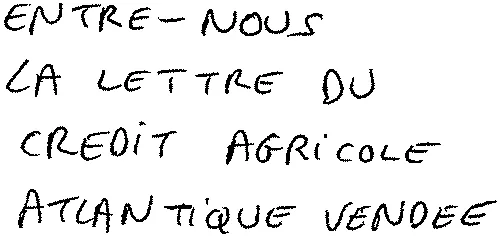 ENTRE-NOUS
LA LETTRE DU
CREDIT AGRICOLE
ATLANTIQUE VENDEE